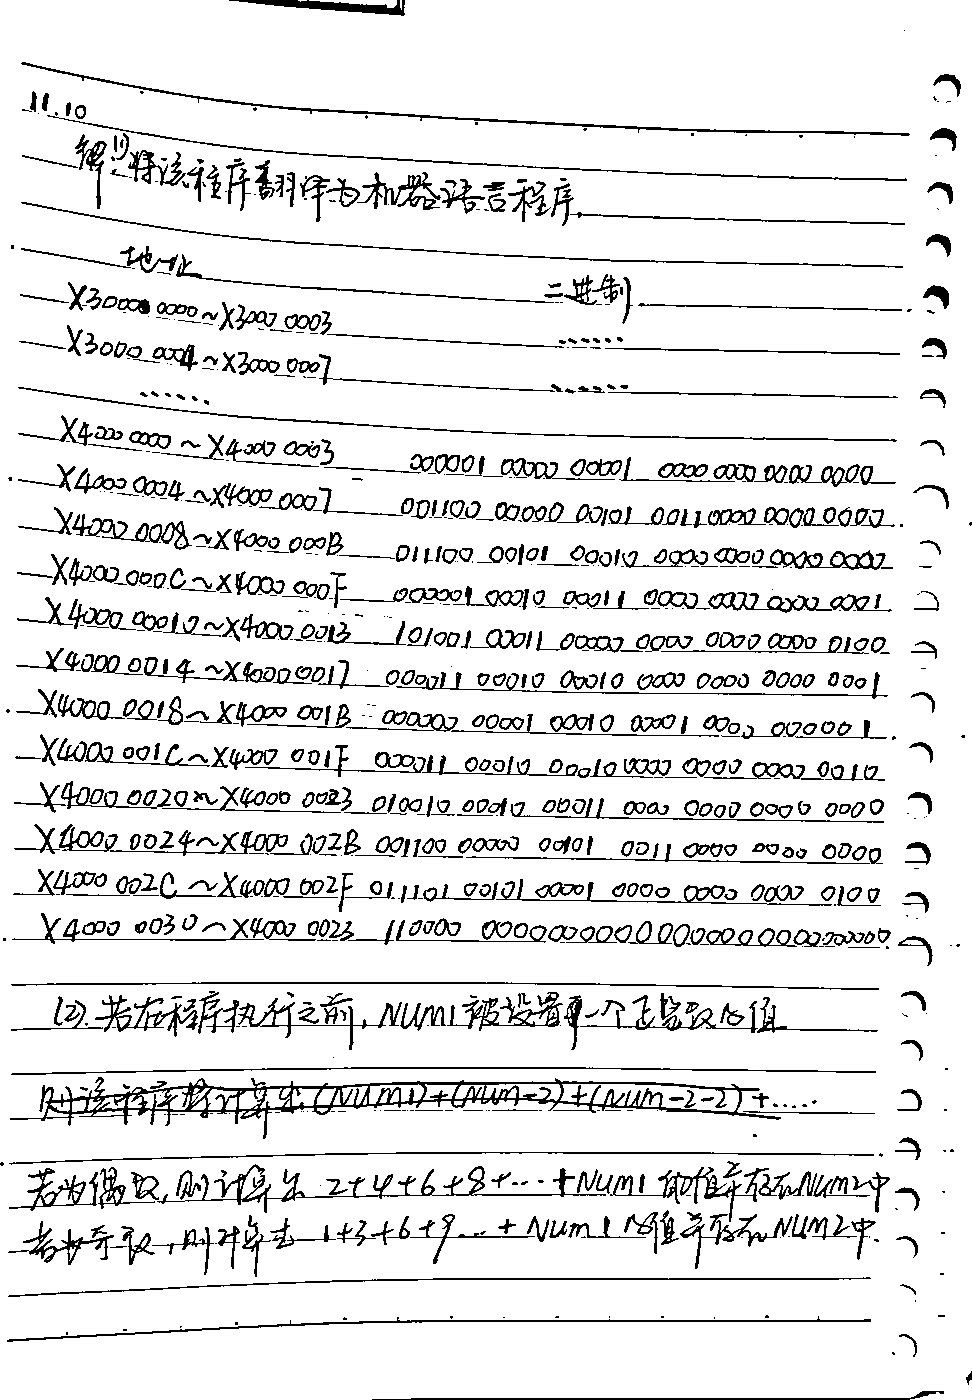 11.10
解:(1)将该程序翻译为机器语言程序.
地址 二进制
X3000 0000~X3000 0003 ......
X3000 0004~X3000 0007 .......
......
X4000 0000~X4000 0003 000001 00000 00001 0000 0000 0000 0000
X4000 0004~X4000 0007 001100 00000 00101 0011 0000 0000 0000
X4000 0008~X4000 000B 011100 00101 00010 0000 0000 0000 0000
X4000 000C~X4000 000F 000001 00010 00011 0000 0000 0000 0001
X4000 00010~X4000 0013 101001 00011 00000 0000 0000 0000 0100
X4000 0014~X4000 0017 000011 00010 00010 0000 0000 0000 0001
X4000 0018~X4000 001B 000000 00001 00010 00001 0000 000001
X4000 001C~X4000 001F 000011 00010 00010 0000 0000 0000 0010
X4000 0020~X4000 0023 010010 00010 00011 0000 0000 0000 0000
X4000 0024~X4000 002B 001100 00000 00101 0011 0000 0000 0000
X4000 002C~X4000 002F 011101 00101 00001 0000 0000 0000 0100
X4000 0030~X4000 0023 110000 00000000000000000000000000
(2).若在程序执行之前,NUM1被设置单一个正整数的值
则该程序将计算出(NUM1)+(NUM-2)+(NUM-2-2)+.....
若为偶数,则计算出 2+4+6+8+...+NUM1的值并存在NUM2中
若为奇数,则计算出 1+3+6+9...+NUM1的值并存在NUM2中.